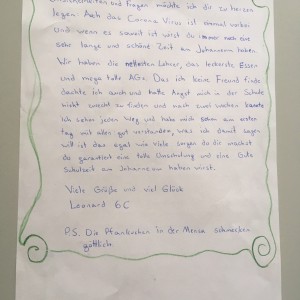 Unsicherheiten und Fragen möchte ich dir zu herzen
legen. Auch das Corona Virus ist einmal vorbei
und wenn es soweit ist wirst du immer noch eine
sehr lange und schöne Zeit am Johanneum haben.
Wir haben die nettesten Lehrer, das leckerste Essen
und mega tolle AGs. Das ich keine Freund finde
dachte ich auch und hatte Angst mich in der Schule
nicht zurecht zu finden und nach zwei Wochen kannte
ich schon jeden Weg und habe mich schon am ersten
tag mit allen gut verstanden, was ich damit sagen
will ist das egal wie viele sorgen du dir machst
du garantiert eine tolle Umschulung und eine Gute
Schulzeit am Johanneum haben wirst.
Viele Grüße und viel Glück
Leonard 6C
P.S. Die Pfankuchen in der Mensa schmecken
göttlich.